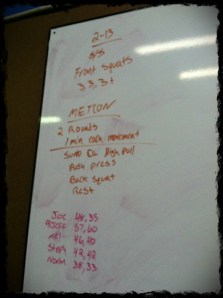 2-13
5/3/1
Front Squats
3, 3, 3+
METCON
2 Rounds
1 min each movement
Sumo DL High Pull
Push press
Back squat
Rest
Joe 48, 35
57, 60
Matt 46, 40
42, 42
Norm 38, 33